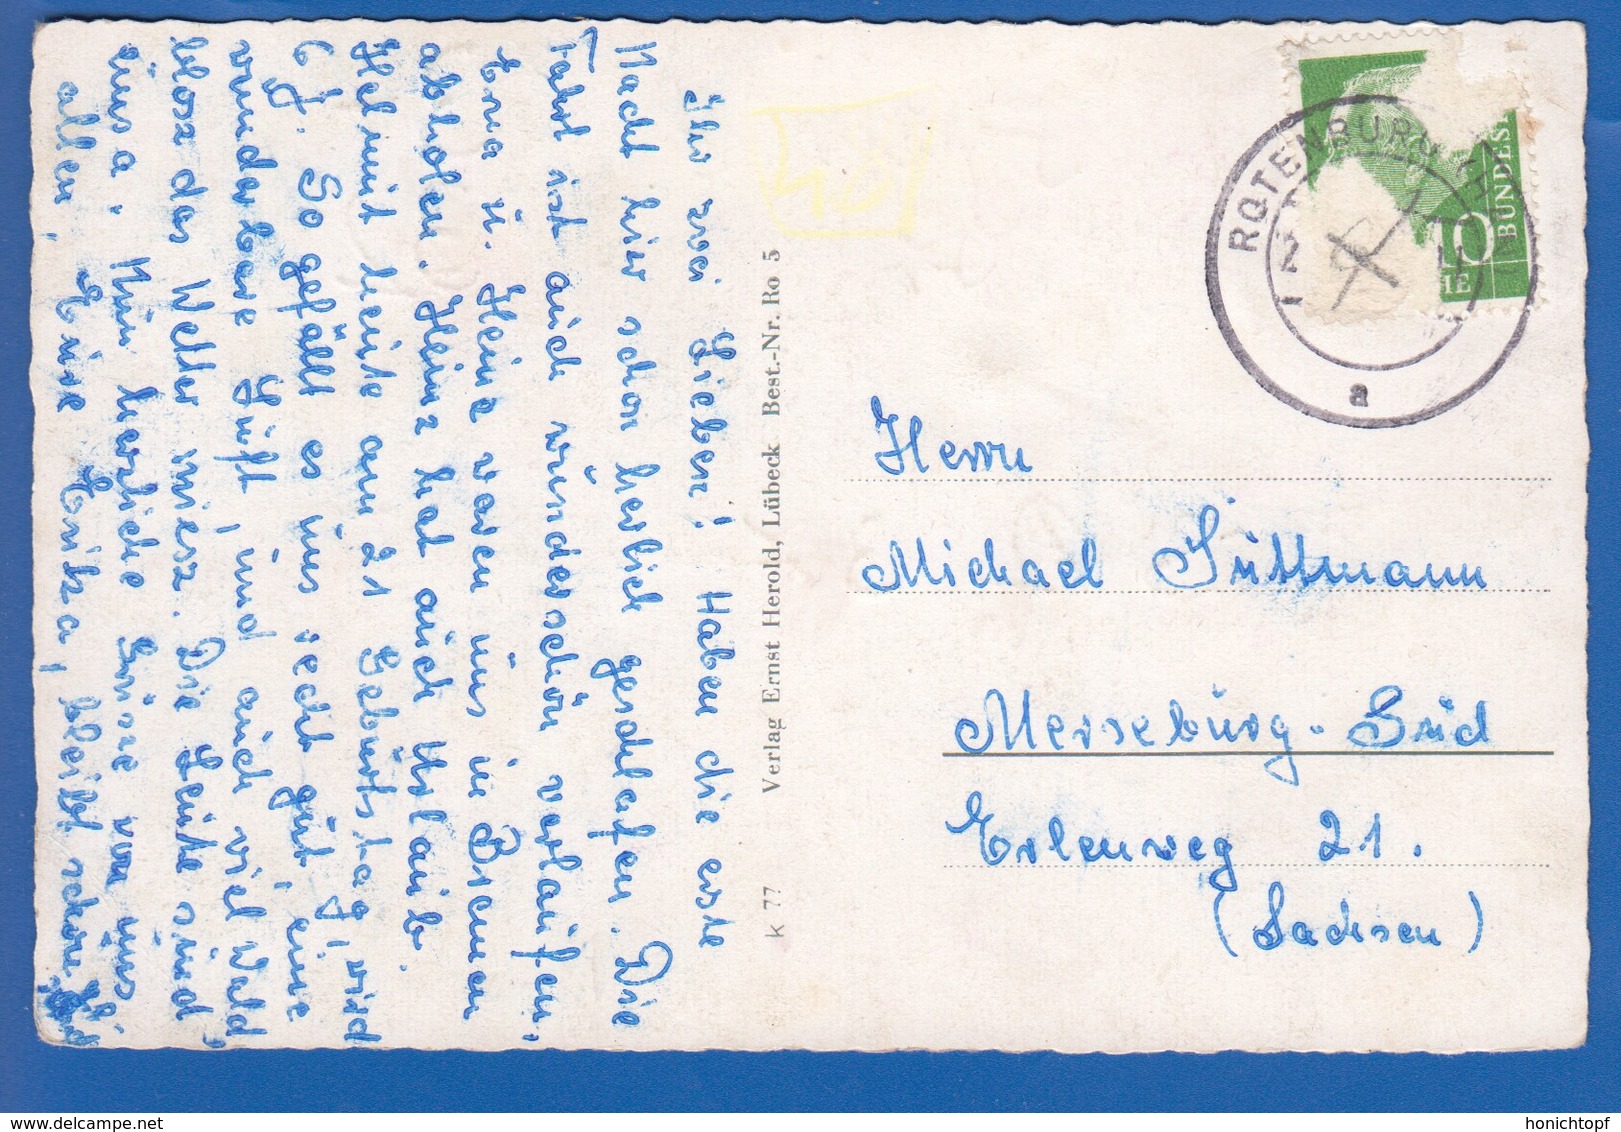 Ihr zwei Lieben! Haben die erste
Nacht hier schon herlich geschlafen. Die
Fahrt ist auch wunderschön verlaufen,
Erna u. Heine waren uns in Bremen
abholen. Heinz hat auch Urlaub.
Helmut heute am 21 Geburtstag, wird
6 J. So gefällt es uns recht gut, eine
wunderbare Luft, und auch viel Wald,
blosz das Wetter miesz. Die Leute sind
Nun herzliche Grüsse von uns
allen, Eure Erika, bleibt schön
Verlag Ernst Herold, Lübeck Best.-Nr. Ro 5
K 77
ROTENBURG
a
10
BUNDES
Herrn
Michael Süttmann
Merseburg-Süd
Erlenweg 21.
(Sachsen)
www.delcampe.net
honichtopf